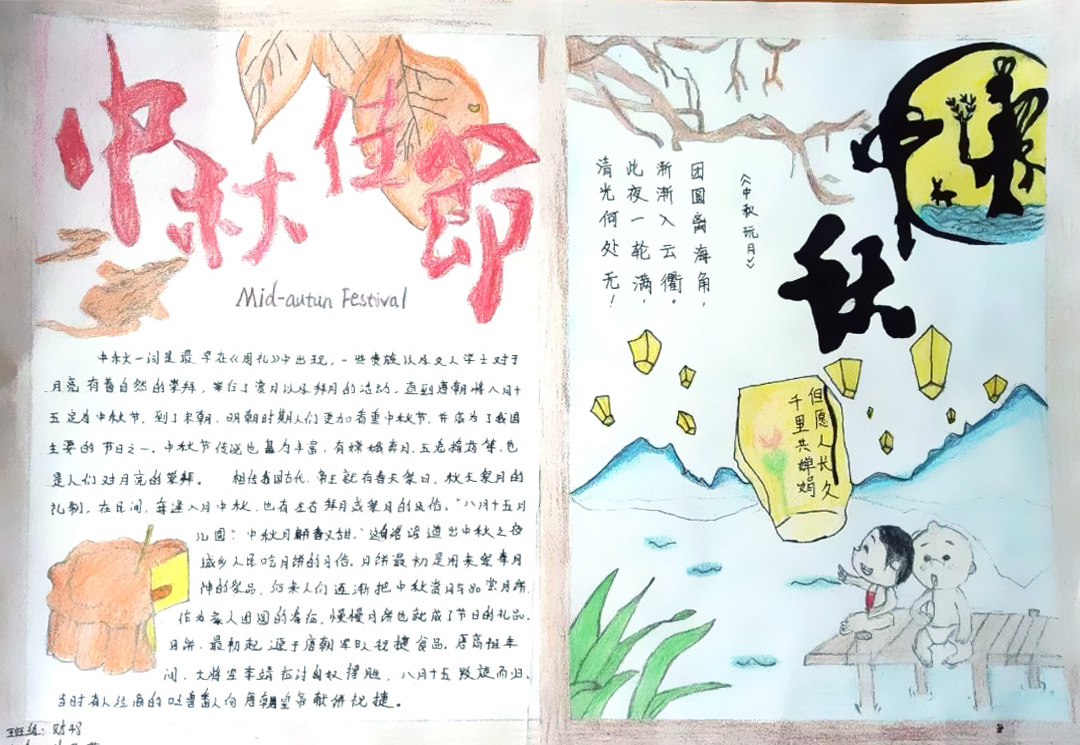 中秋佳节
Mid-autun Festival
中秋一词是最早在《周礼》中出现，一些贵族以及文人学士对于
月亮有着自然的崇拜，举行了赏月以及拜月的活动。直到唐朝将八月十
五定为中秋节，到了宋朝，明朝时期人们更加看重中秋节，并成为了我国
主要的节日之一。中秋节传说也甚为丰富，有嫦娥奔月，玉兔捣药等，也
是人们对月亮的崇拜。 相传我国古代，帝王就有春天祭日，秋天祭月的
礼制，在民间，每逢八月中秋，也有左右拜月或祭月的风俗。"八月十五月
儿圆，中秋月饼香又甜，这名谚语道出中秋之夜
城乡人民吃月饼的习俗，月饼最初是用来祭奉月
神的祭品，后来人们逐渐把中秋赏月与品尝月饼，
作为家人团圆的象征，慢慢月饼也就成了节日的礼品。
月饼，最初起源于唐朝军队祝捷食品，唐高祖年
间，大将军李靖征讨匈奴得胜，八月十五凯旋而归，
当时有人经商的吐鲁番人向唐朝皇帝献饼祝捷。
班级：
中秋
《中秋玩月》
团圆离海角，
渐渐入云衢。
此夜一轮满，
清光何处无！
但愿人长久
千里共婵娟